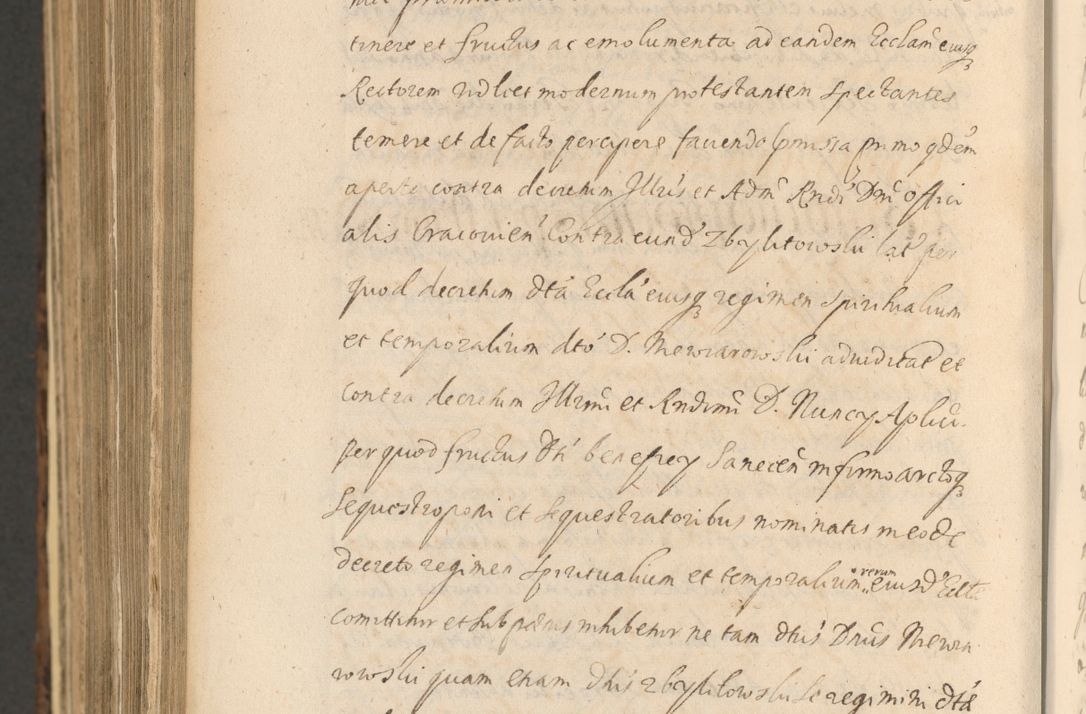 tinere et fructus ac emolumenta ad eandem Ecclam eiusq
Rectorem vidlicet modernum protestantem spectantes
temere et de facto percipere fauendo praemissa primo qdem
aperte contra decretum Illris et Admi Rndi Dni Offici
alis Cracovien Contra eund Zbylitowski lat per
quod decretum dta Eccla eiusq regimen spiritualium
et temporalium dto D. Mewiarowski adiudicat et
contra decretum Illrimi et Rndimi D. Nuncy Aplici.
per quod fructus dti beneficy Sanecen in firmo arctoq
sequestro poni et sequestratoribus nominatis in eode
decreto regimen spiritualium et temporalium rerum eiusd Eccle
comittitur et sub paenis inhibetur ne tam dtus Dnus Mewia
rowski quam etiam dtus Zbylitowski se regimini dta